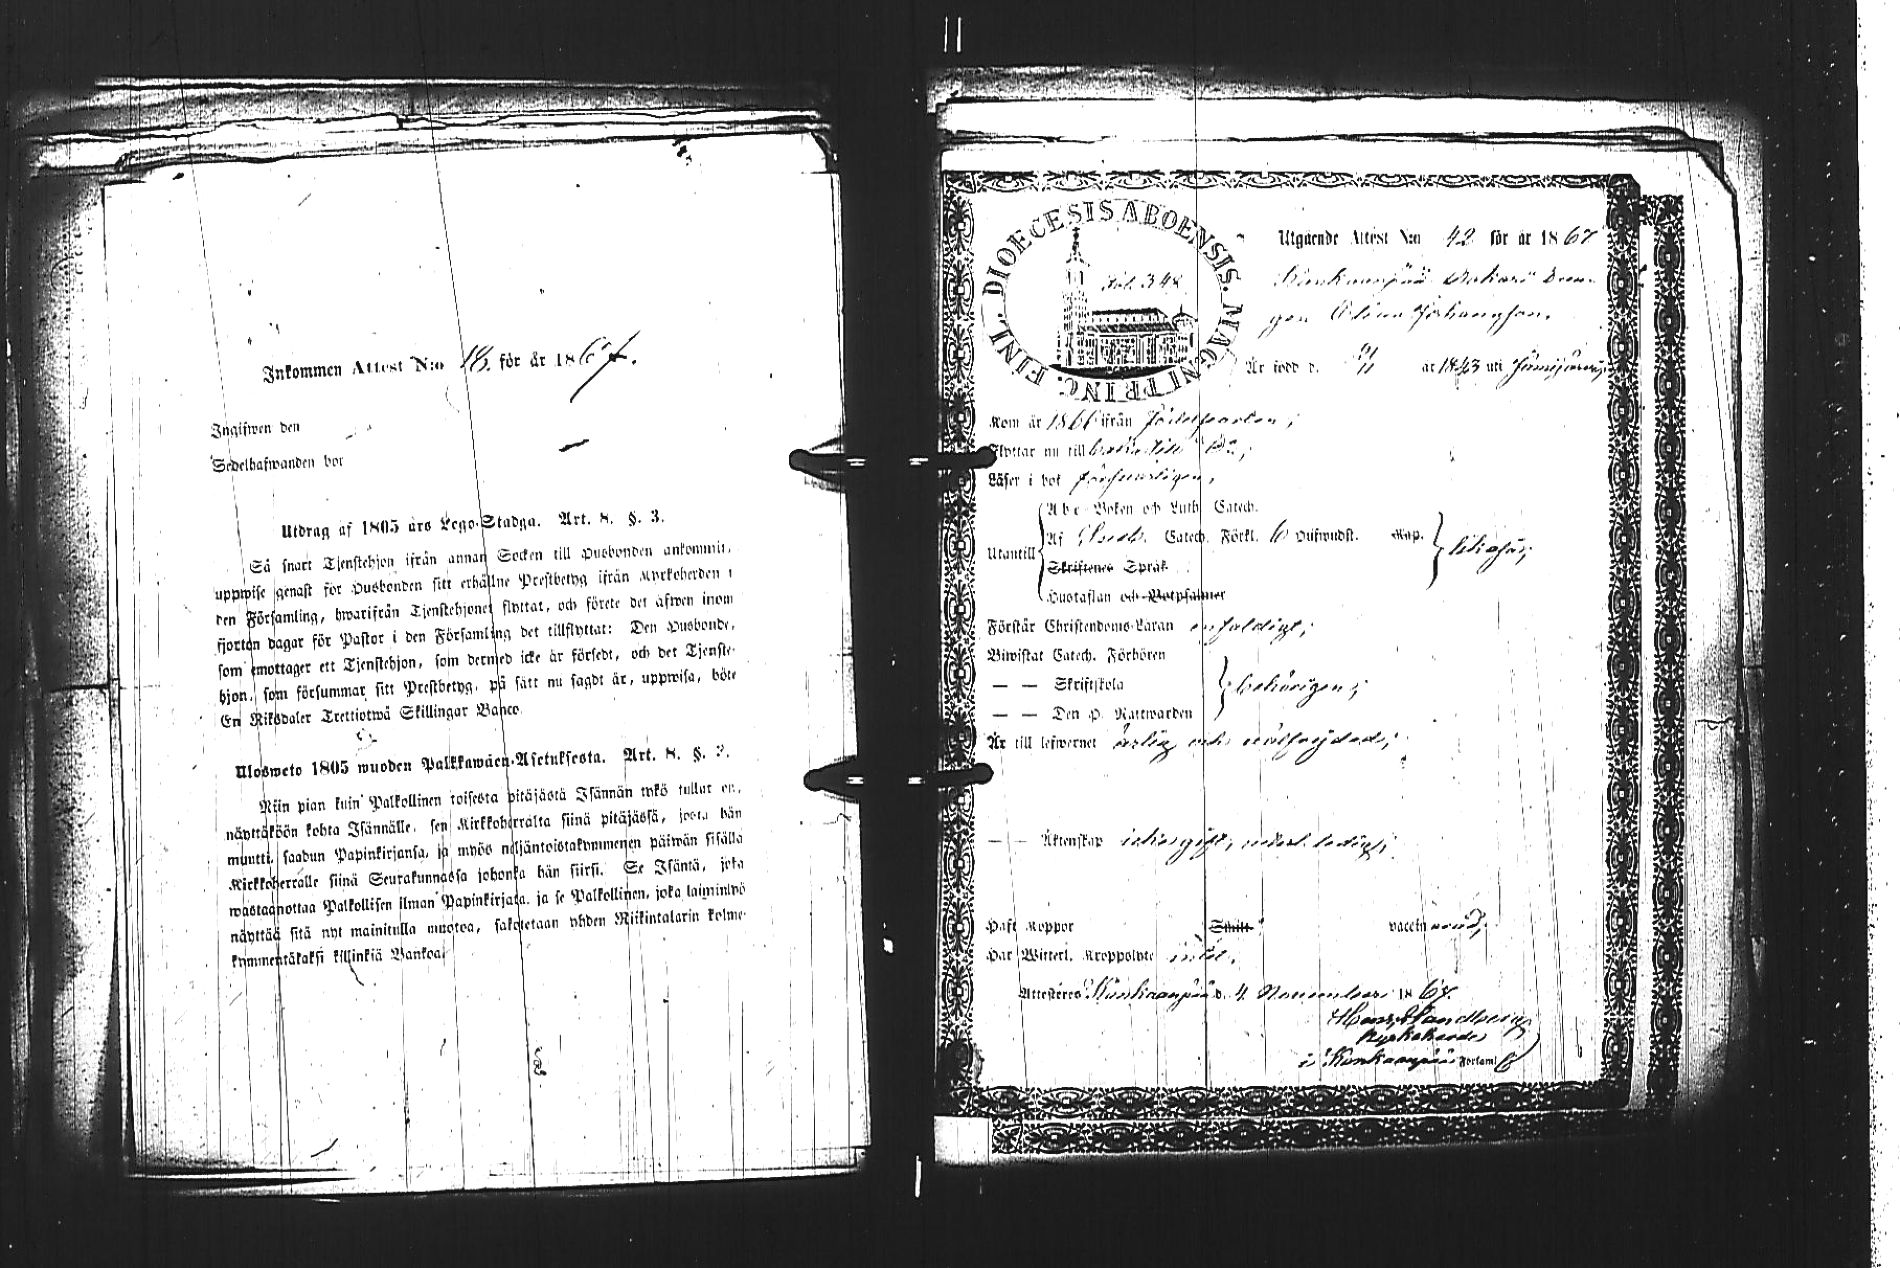 Inkommen Attest N:o 18. för år 1867.
Ingifwen den
Sedelhafwanden bor
Utdrag af 1805 års Lego-Stadga. Art. 8. §. 3.
Så snart Tjenstehjon ifrån annan Socken till Husbonden ankommit,
uppwise genast för Husbonden sitt erhållne Prestbetyg ifrån Kyrkoherden i
den Församling, hwarifrån Tjenstehjonet flyttat, och förete det äfwen inom
fjorton dagar för Pastor i den Församling det tillflyttat: Den Husbonde,
som emottager ett Tjenstehjon, som dermed icke är försedt, och det Tjenste-
hjon, som försummar sitt Prestbetyg, på sätt nu sagdt är, uppwisa, böte
En Riksdaler Trettiotwå Skillingar Banco.
Ulosweto 1805 wuoden Palkkawäen-Asetuksesta. Art. 8. §. 3.
Niin pian kuin Palkollinen toisesta pitäjästä Isännän tykö tullut on,
näyttäköön kohta Isännälle, sen Kirkkoherralta siinä pitäjässä, josta hän
muutti, saadun Papinkirjansa, ja myös neljäntoistakymmenen päiwän sisällä
Kirkkoherralle siinä Seurakunnassa johonka hän siirsi. Se Isäntä, joka
wastaanottaa Palkollisen ilman Papinkirjata, ja se Palkollinen, joka laiminlyö
näyttää sitä nyt mainitulla muotoa, sakotetaan yhden Riikintalarin kolme-
kymmentäkaksi killinkiä Bankoa.
DIOECESIS ABOENSIS. MAGNI PRINC. FINL.
Fol. 348
Utgående Attest N:o 42 för år 1867
Kankaanpää
Johansson.
Är född d. år 1843 uti Jämijärvi,
Kom år 1866 ifrån
Flyttar nu till
Läser i bok försvarligen,
Abc-Boken och Luth. Catech.
Utantill Af Sveb. Catech. Förkl. 6 Hufwudst. Kap.
Skriftenes Språk
Hustaflan och Botpsalmer
Förstår Christendoms-Läran enfaldigt;
Biwistat Catech. Förhören
— — Skriftskola behörigen;
— — Den H. Nattwarden
Är till lefwernet ärlig och wälfrejdad;
— — Äktenskap ledig;
Haft Koppor Smitt. vaccinerad;
Har Witterl. Kroppslyte intet.
Attesteres Kankaanpää d. 4 November 1867.
Sandberg
Kyrkoherde
i Kankaanpää Förs.